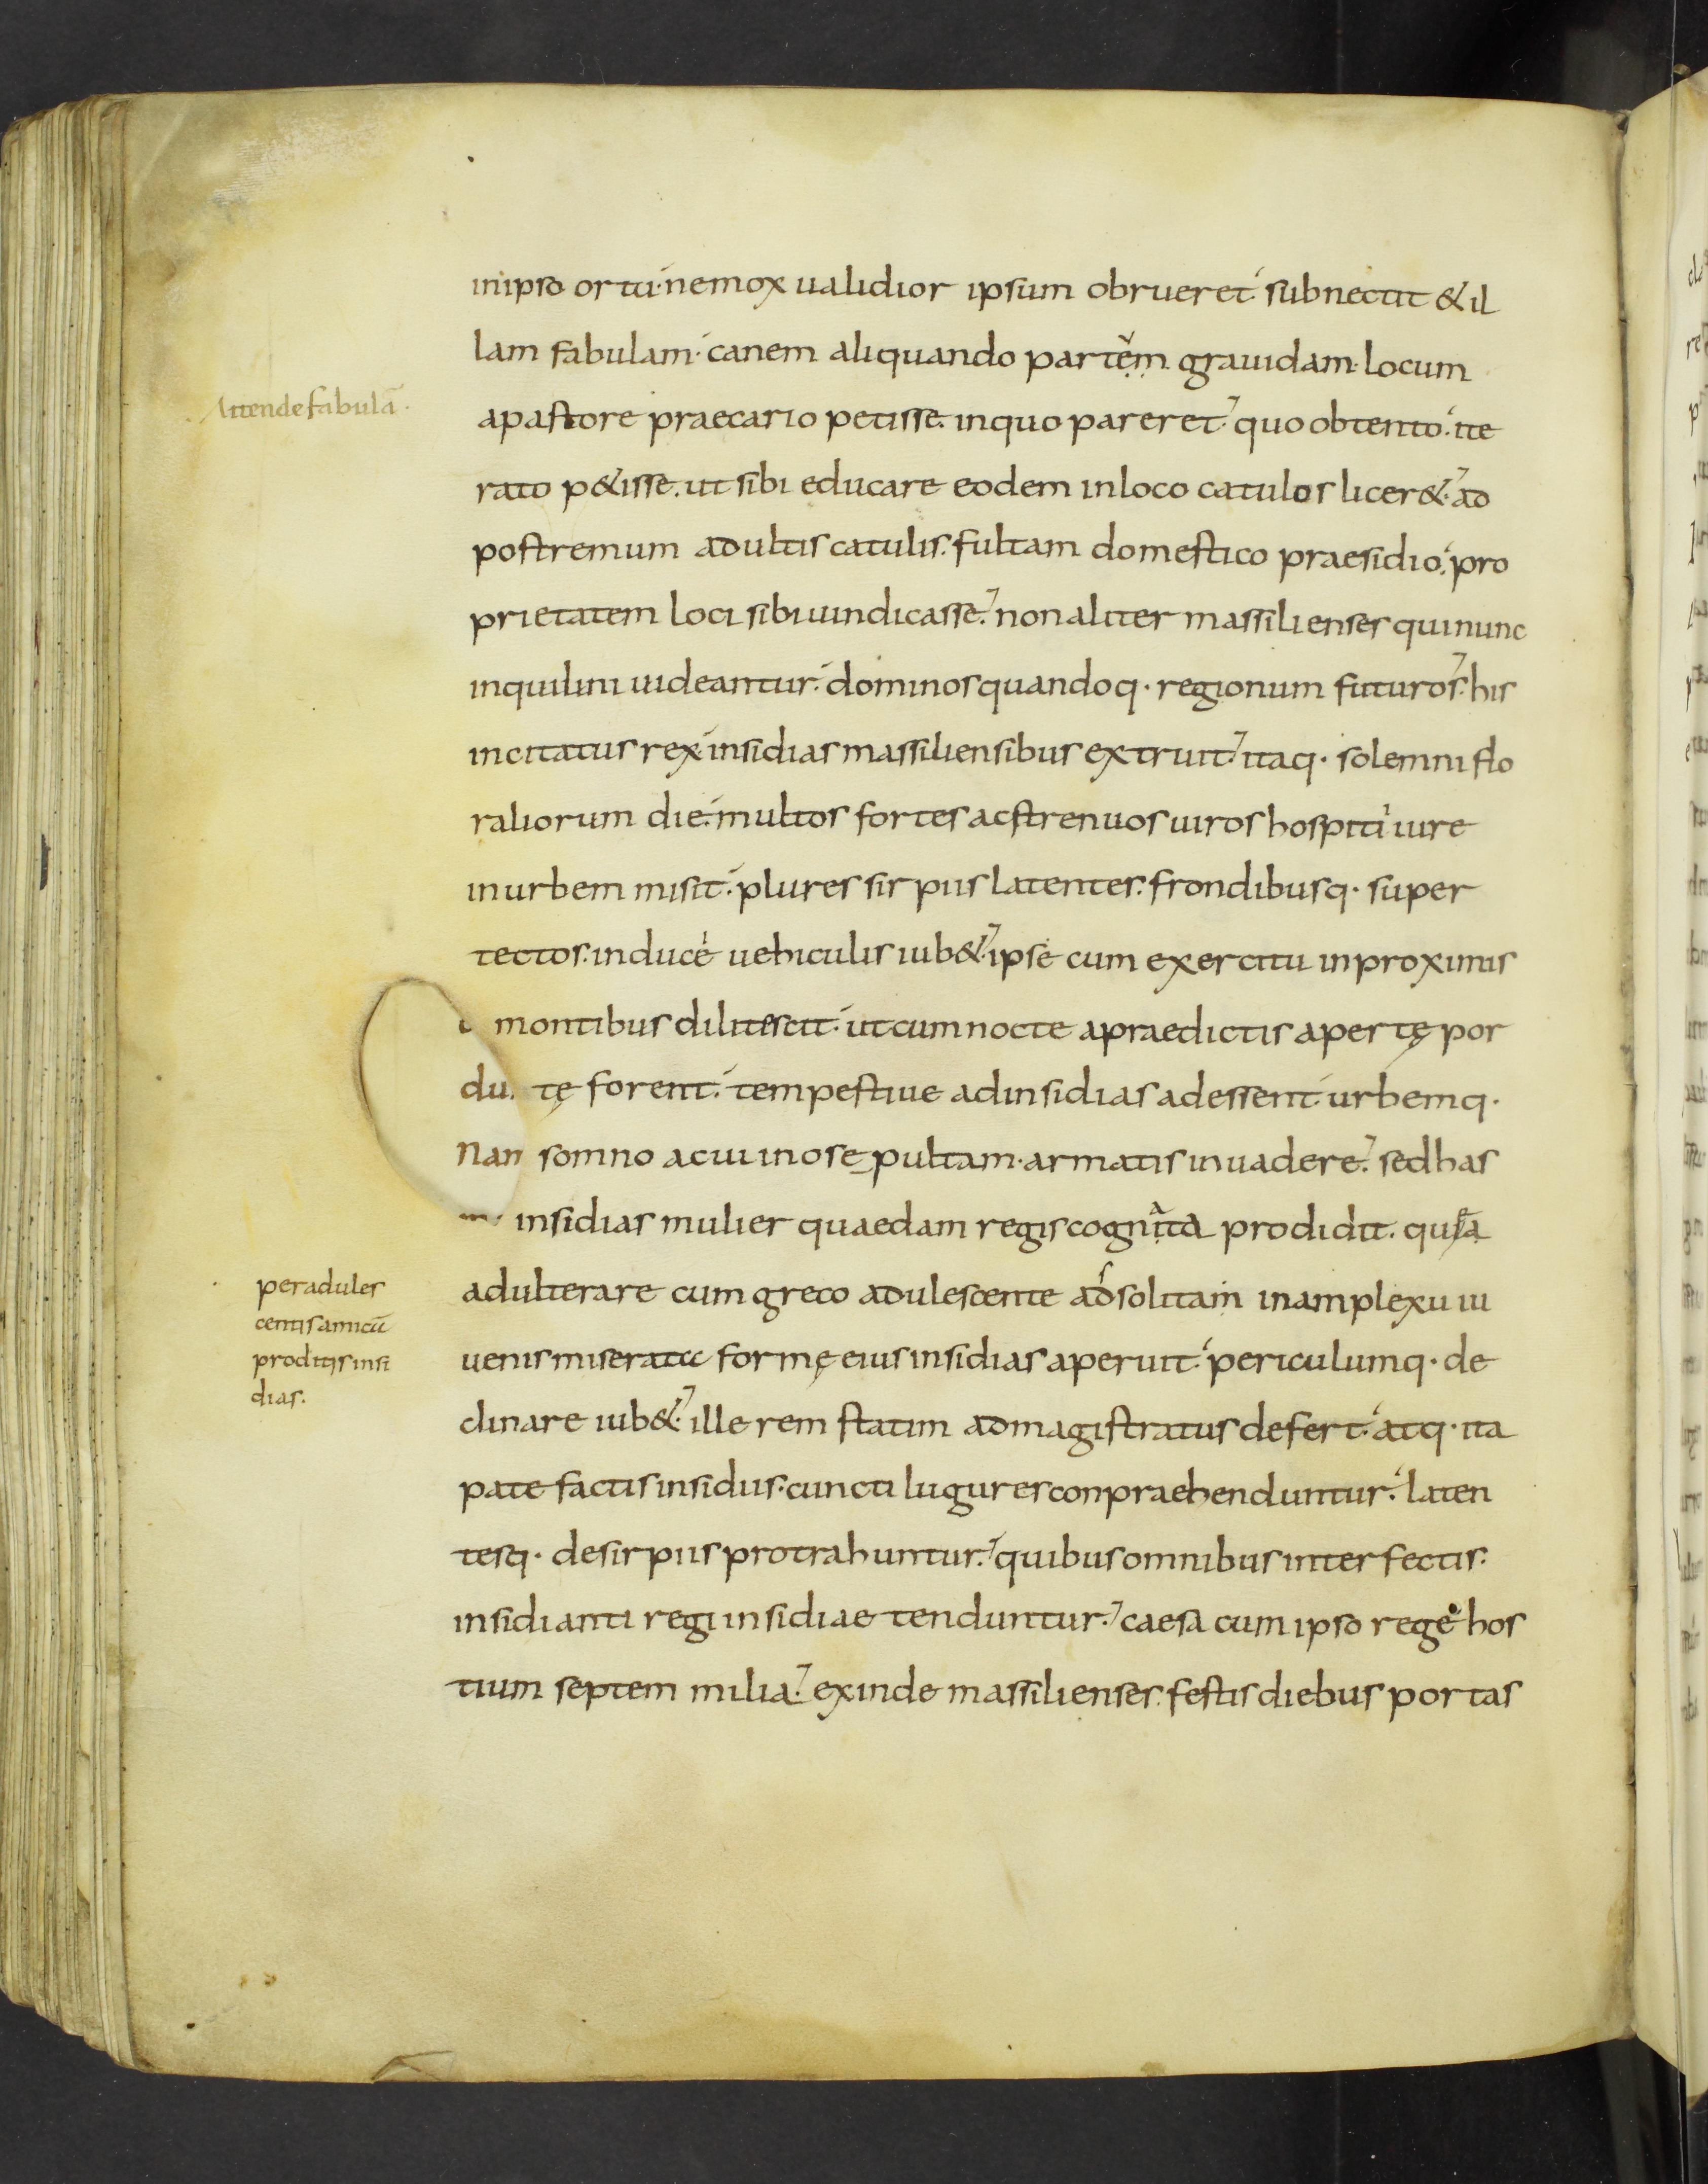 in ipso ortu· ne mox ualidior ipsum obrueret· subnectit & il
lam fabulam· canem aliquando partem grauidam· locum
Attende fabulā·
a pastore praecario petisse· in quo pareret· quo obtento· ite
rato p&isse· ut sibi educare eodem in loco catulos licer&· ad
postremum adultis catulis· fultam domestico praesidio· pro
prietatem loci sibi uindicasse· non aliter massilienses qui nunc
inquilini uideantur· dominos quandoq· regionum futuros· his
incitatus rex insidias massiliensibus extruit· itaq· solemni flo
raliorum die· multos fortes ac strenuos uiros hospitii iure
in urbem misit· plures sirpiis latentes· frondibusq· super
tectos· induce uehiculis iub&· ipse cum exercitu in proximis
montibus dilitescit· ut cum nocte a praedictis apertę por
tę forent· tempestiue ad insidias adessent· urbemq·
somno ac uino sepultam· armatis inuadere· sed has
insidias mulier quaedam regis cognata prodidit· quae
per adules
centis amicū
proditis insi
dias·
adulterare cum greco adulescente adsolitam in amplexu iu
uenis miserata formę eius insidias aperuit· periculumq· de
clinare iub&· ille rem statim ad magistratus defert· atq· ita
patefactis insidiis· cuncti lugures conpraehenduntur· laten
tesq· de sirpiis protrahuntur· quibus omnibus interfectis·
insidianti regi insidiae tenduntur· caesa cum ipso rege hos
tium septem milia· exinde massilienses· festis diebus portas